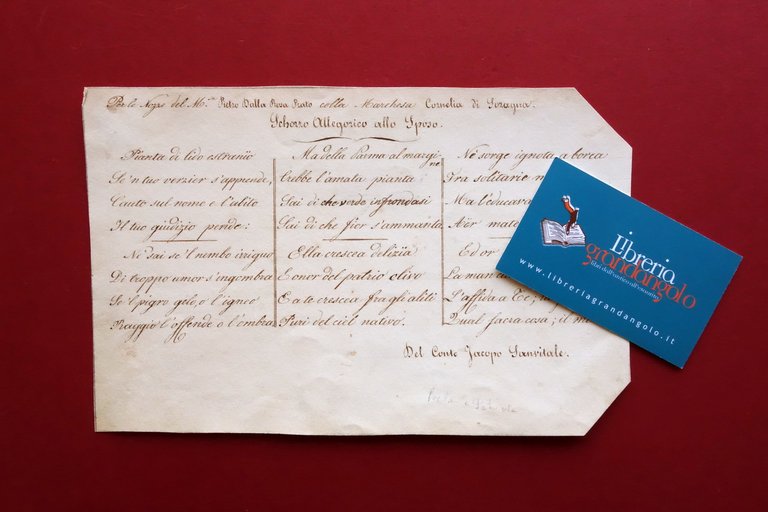 Per le Nozze del M.se Pietro Dalla Rosa Prato colla Marchesa Cornelia di Soragna.
Scherzo Allegorico allo Sposo.
Pianta di lido estranio
Se 'n tuo verzier s'apprende,
Cauto sul nome e l'abito
Il tuo giudizio pende:
Nè sai se 'l nembo irriguo
Di troppo umor s'ingombra
Se 'l pigro gelo, o l'igneo
Raggio l'offende o l'ombra
Ma della Parma al margine
Crebbe l'amata pianta
Sai di che verde infrondasi
Sai di che fior s'ammanta
Ella crescea delizia
L'onor del patrio clivo
E a te crescea fra gli aliti
Puri del ciel nativo.
Nè sorge ignota a borea
Fra solitarie
Ma l'educava
Aër mate
Ed or
La man
L'affida a Te;
Qual sacra cosa; il
Del Conte Jacopo Sanvitale.
Libreria
grandangolo
libri dall'antico all'introvabile
www.libreriagrandangolo.it